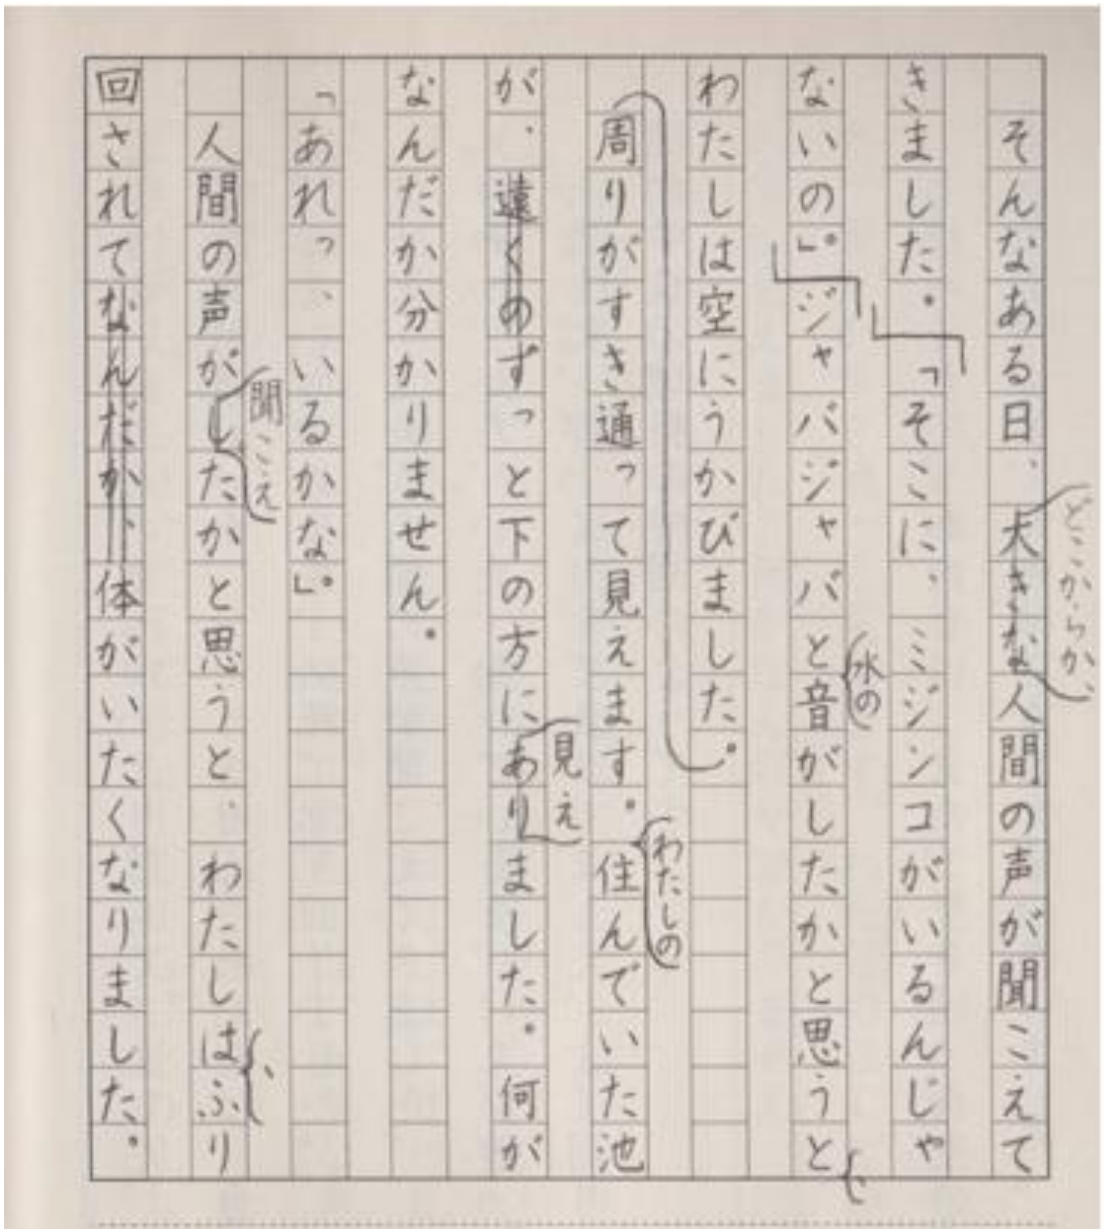 どこからか、
そんなある日、大きな人間の声が聞こえて
きました。「そこに、ミジンコがいるんじゃ
水の
ないの」。ジャバジャバと音がしたかと思うと、
わたしは空にうかびました。
わたしの
周りがすき通って見えます。住んでいた池
見え
が、遠くのずっと下の方にありました。何が
なんだか分かりません。
「あれっ、いるかな」。
聞こえ
人間の声がしたかと思うと、わたしは、ふり
回されてなんだか、体がいたくなりました。